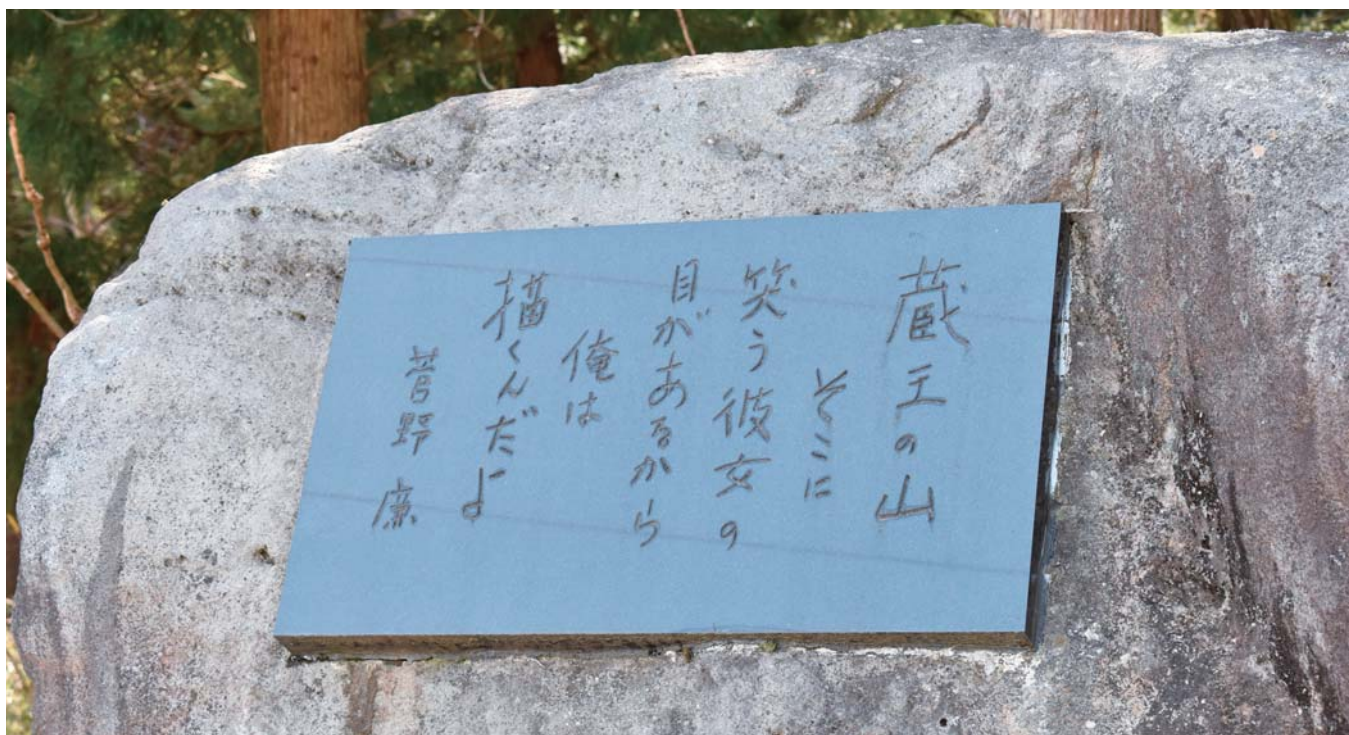 蔵王の山
そこに
笑う彼女の
目があるから
俺は
描くんだよ
菅野 廉